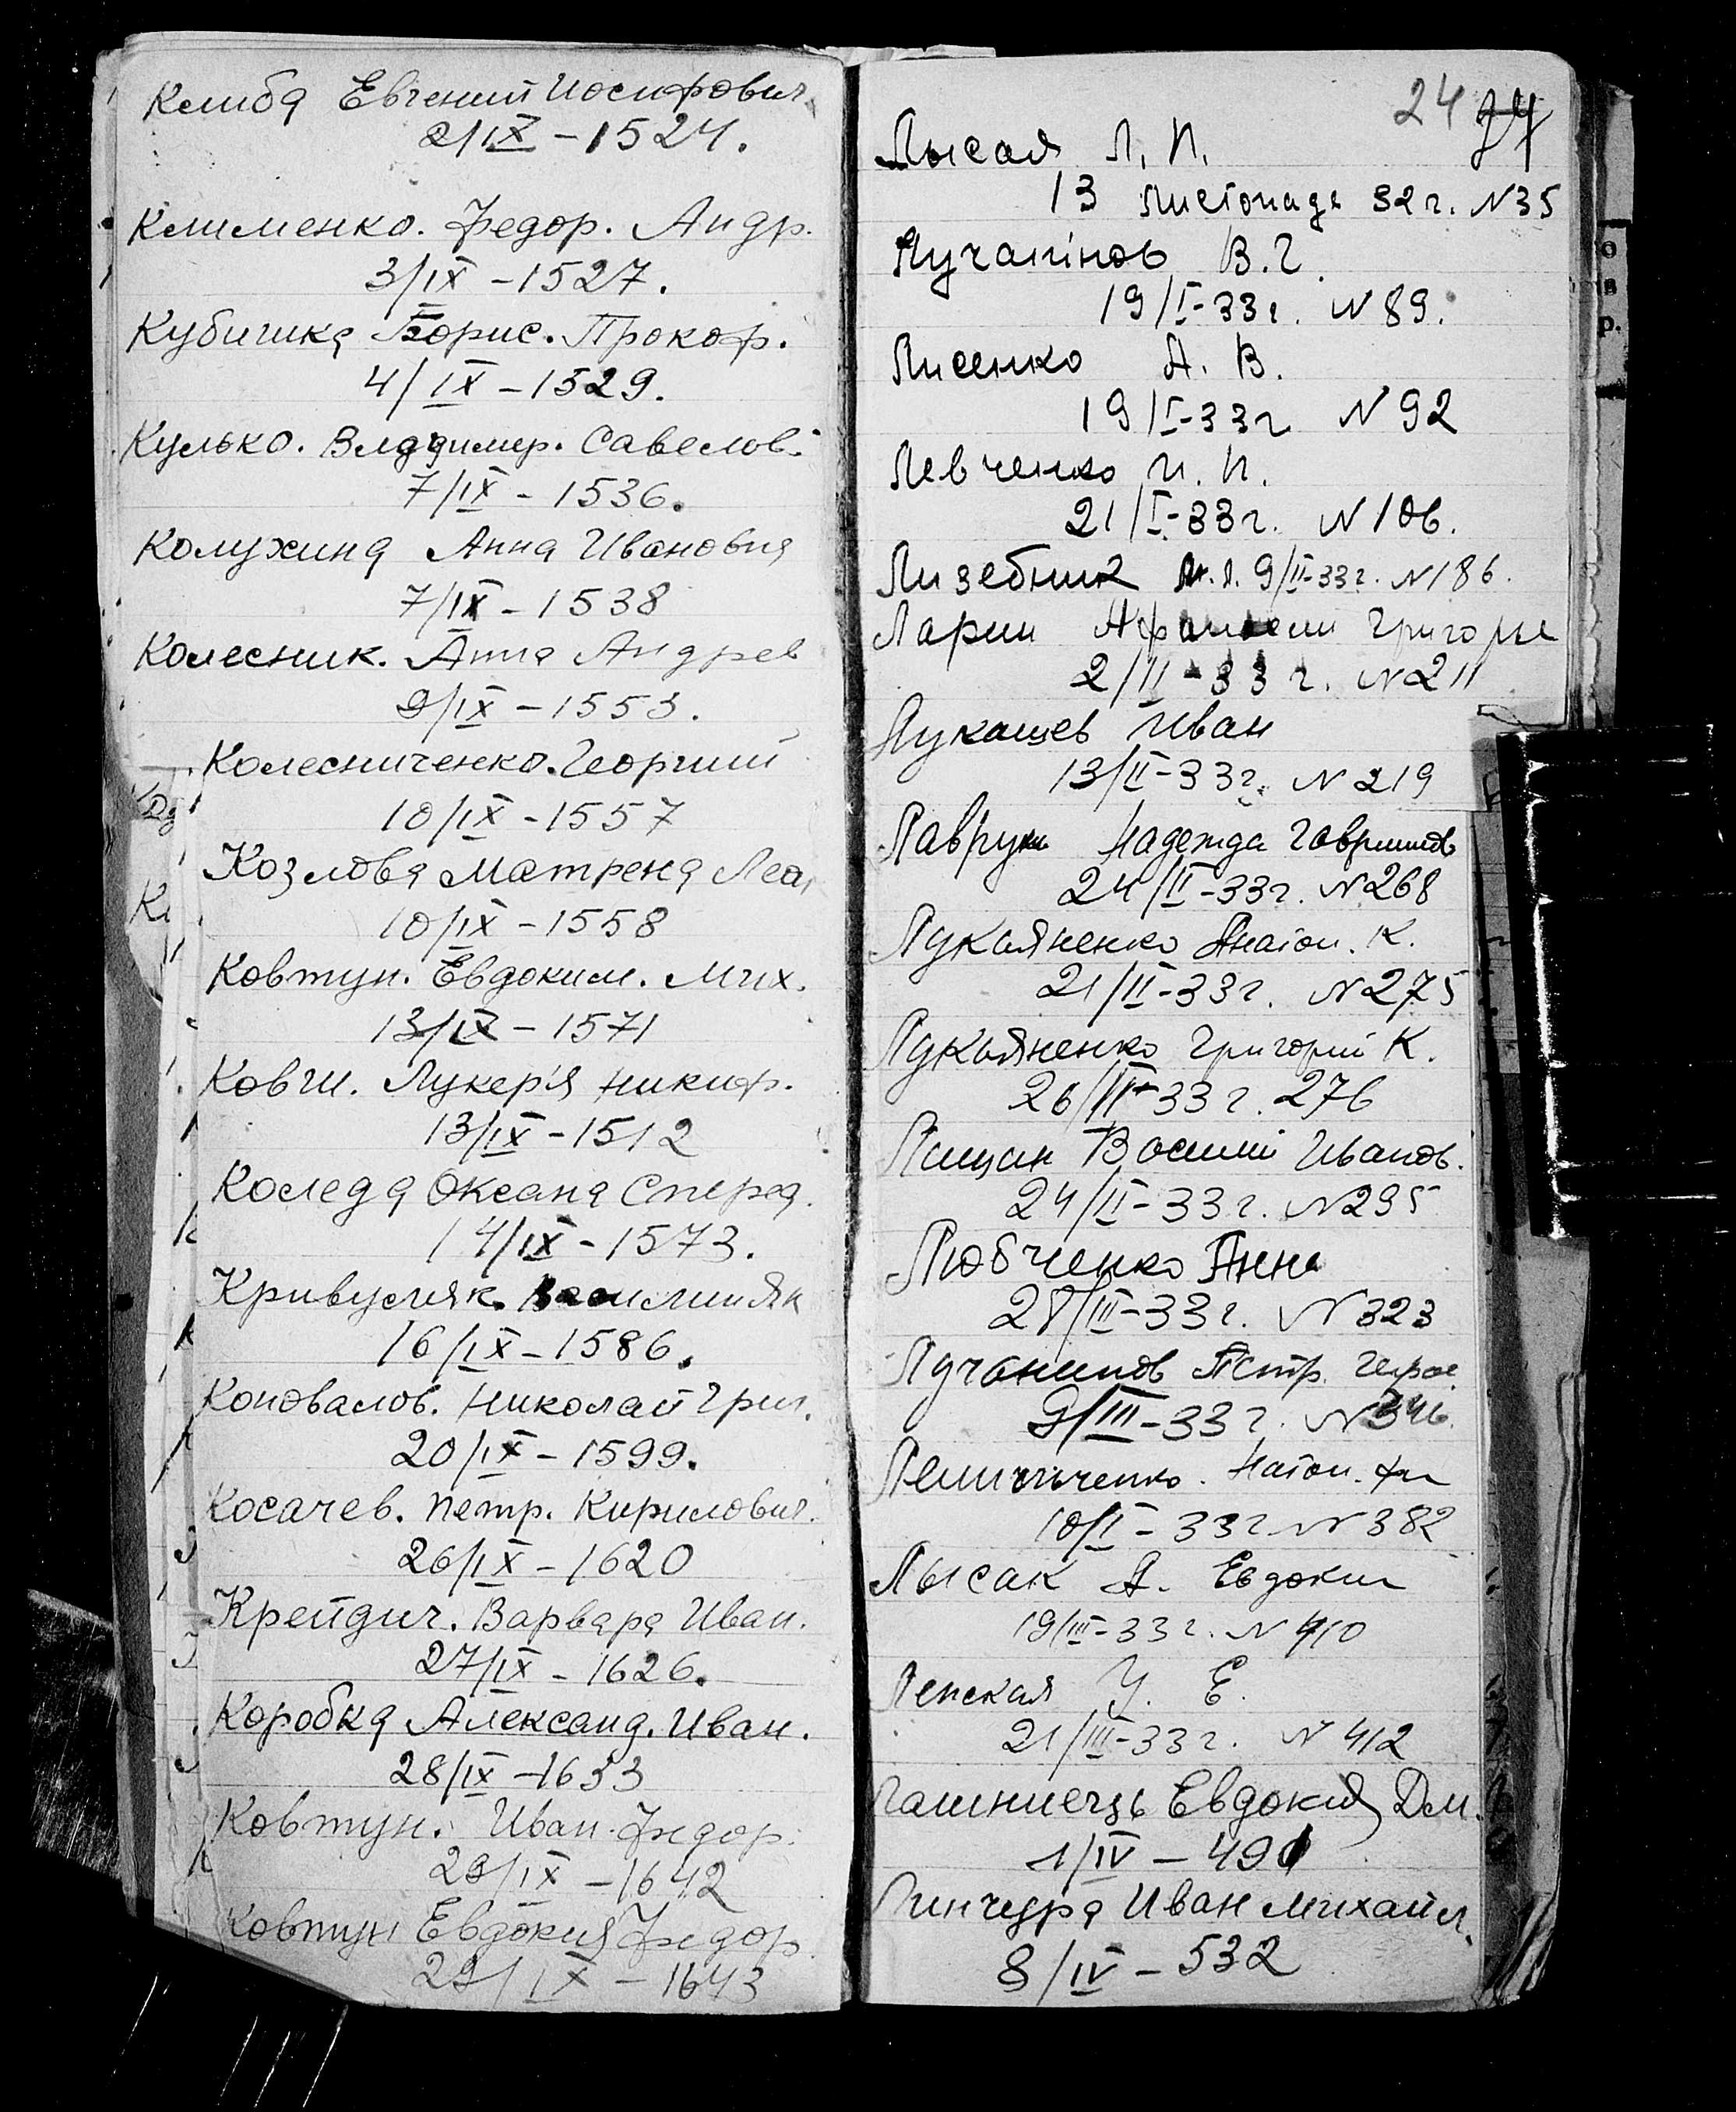 Клиба Евгений Иосифович
2/IX – 1524.
Клименко. Федор. Андр.
3/IX – 1527.
Кубишка Борис. Прокоф.
4/IX – 1529.
Кулько. Владимир. Савелов.
7/IX – 1536.
Колухина Анна Ивановна
7/IX – 1538
Колесник. Анна Андрев
9/IX – 1553.
Колесниченко. Георгий
10/IX – 1557
Козлова Матрена Леа
10/IX – 1558
Ковтун. Евдоким. Мих.
13/IX – 1571
Ковги. Лукер'я Никиф.
13/IX – 1512
Коледа Оксана Спирид.
14/IX – 1573.
Кривусияк.
16/IX – 1586.
Коновалов. Николай Григ.
20/IX – 1599.
Косачев. Петр. Кирилович.
26/IX – 1620
Крейдич. Варвара Иван.
27/IX – 1626.
Коробка Александ. Иван.
28/IX – 1633
Ковтун. Иван Федор.
29/IX – 1642
Ковтун Евдокия Федор.
29/IX – 1643
24
Лысая Л. П.
13 Листопада 32 г. N35
Лучанінов В. Г.
19/I-33 г. N 89.
Лисенко А. В.
19/I-33 г N 92
Левченко И. П.
21/I-33 г. N 106.
Лизебник 9/II-33 г. N 186.
Ларин Григорье
2/II-33 г. N 211
Лукашев Иван
13/II-33 г. N 219
Лаврун Надежда Гаврилов
24/II-33 г. N 268
Лукьяненко Анатол. К.
21/II-33 г. N 275
Лукьяненко Григорий К.
26/II-33 г. 276
Лищин Василий Иванов.
24/II-33 г. N 295
Любченко Анна
28/III-33 г. N 323
Лучанинов Петр.
9/III-33 г. N 346.
Натол.
10/I-33 г N 382
Лысак А. Евдоким
19/III-33 г. N 410
Ленская У. Е.
21/III-33 г. N 412
Лашниець Евдокия Дм.
1/IV – 491
Линчура Иван Михайл.
8/IV – 532